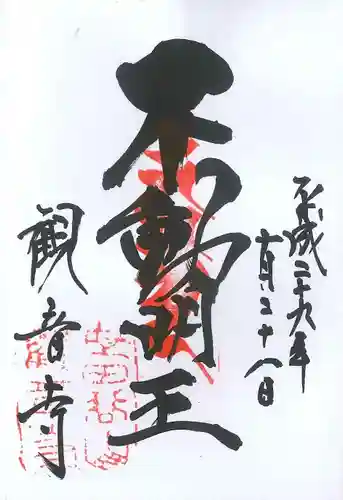 平成二十九年
十月二十八日
不動明王
観音寺